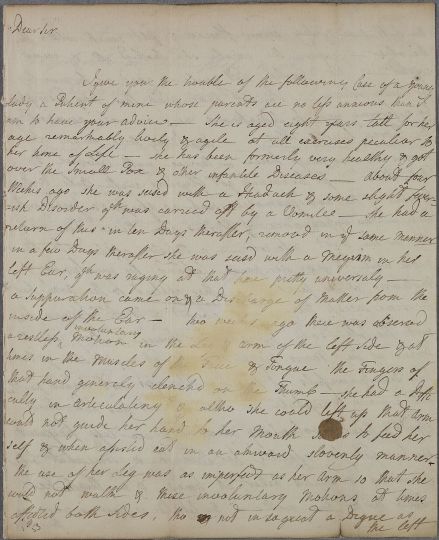 Dear Sir
I give you the trouble of the following Case of a young
Lady a Patient of mine whose parents are no less anxious than I
am to have your advice — She is aged eight years tall for her
age remarkably lively & agile at all exercises peculiar to
her time of Life — she has been formerly very healthy & got
over the Small Pox & other infantile Diseases — about four
weeks ago she was seised with a Headach & some slight
ish Disorder qch was carried off by a Vomites — She had a
return of this in ten Days thereafter, removed in ye same manner
in a few Days thereafter she was seisd with a in her
left Ear, qch was raging at that time pretty universaly —
a Suppuration came on & a Discharge of Matter from the
inside of the Ear — two weeks ago there was observed
a restless, involuntary Motion in the Leg & arm of the left side & at
times in the Muscles of the Face & Tongue the Fingers of
that hand generaly clenched on the Thumb — she had a diffi
culty in articulating & altho she could lift up that arm
could not guide her hand to her Mouth so as to feed her
self & when assisted eat in an awkward slovenly manner —
the use of her Leg was as imperfect as her Arm so that she
could not walk & these involuntary Motions at times
affected both sides, tho not in so great a Degree as
the left